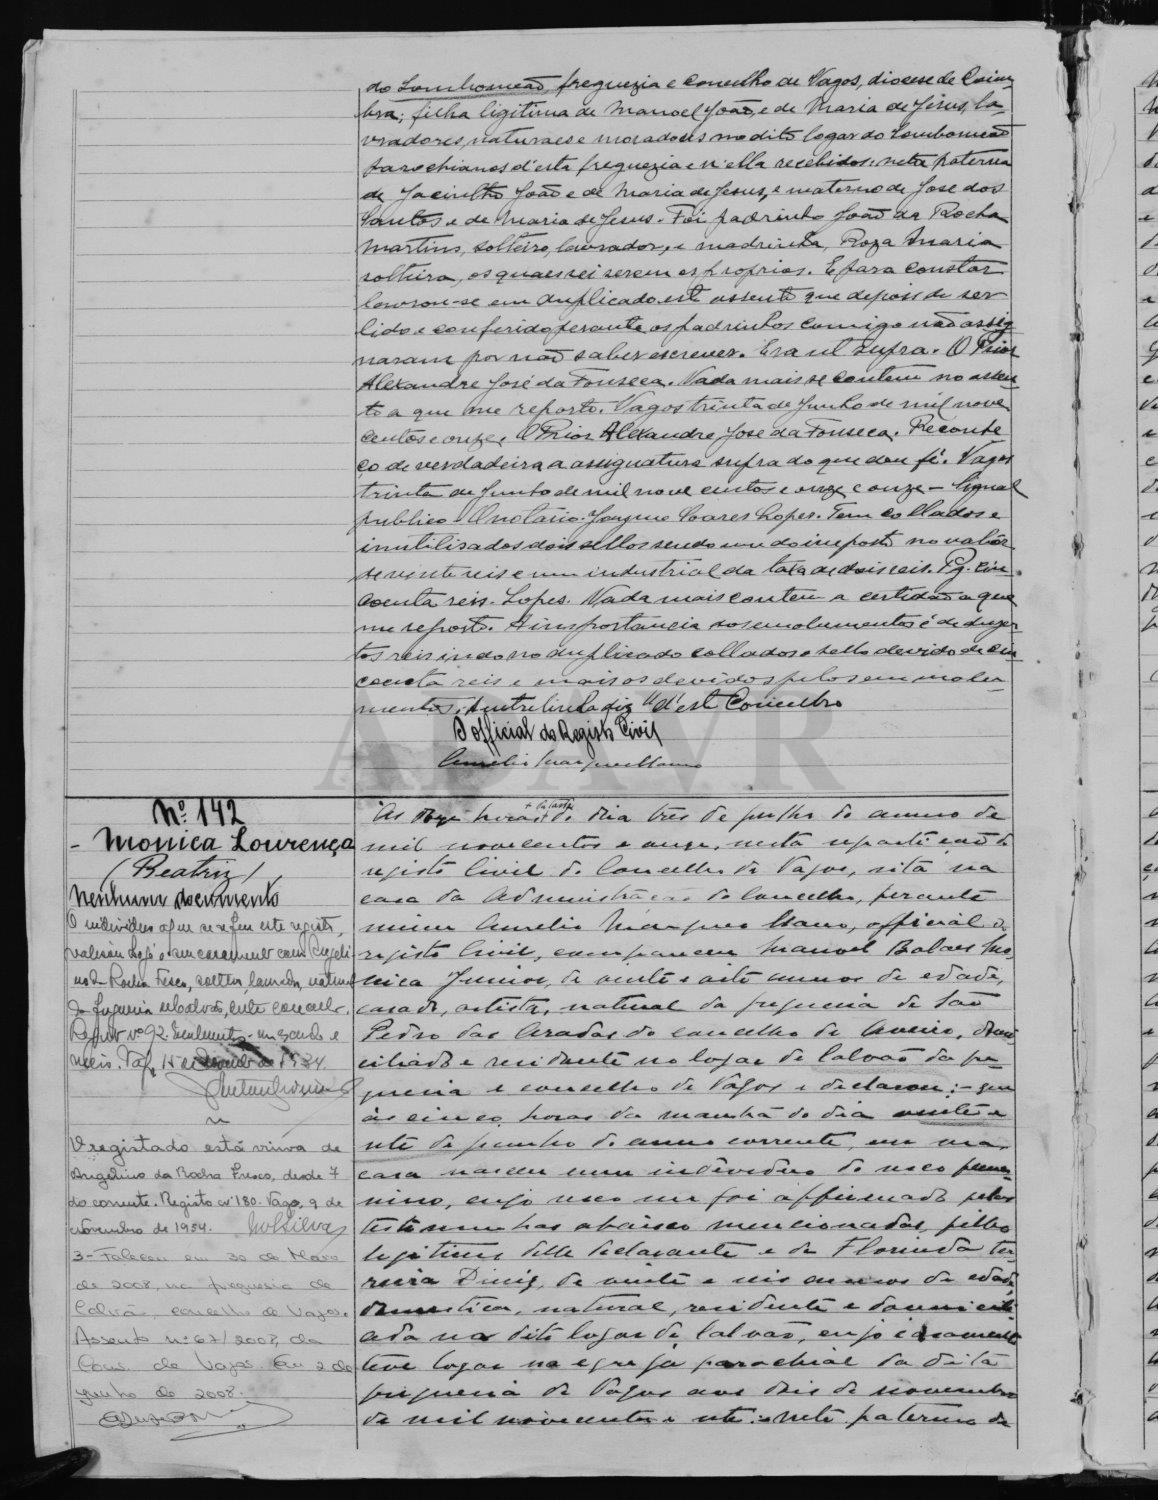 do Lombomeão, freguezia e concelho de Vagos, diocese de Coim
bra; filha ligitima de Manoel João, e de Maria de Jesus, la-
vradores, naturaes e moradores no dito logar do Lombomeão
parochianos d'esta freguezia e n'ella recebidos: neta paterna
de Jacintho João e de Maria de Jesus, e materno de José dos
Santos e de Maria de Jesus. Foi padrinho João da Rocha
Martins, solteiro, lavrador, e madrinha, Roza Maria
solteira, os quaes sei serem os proprios. E para constar
lavrou-se em duplicado este assento que depois de ser
lido e conferido perante os padrinhos comigo não assig
naram por não saber escrever. Era ut supra. O Prior
Alexandre José da Fonseca. Nada mais se contem no assen
to a que me reporto. Vagos trinta de Junho de mil nove
centos e onze. O Prior Alexandre José da Fonseca. Reconhe
ço de verdadeira a assignatura supra do que dou fé. Vagos
trinta de Junho de mil nove centos e onze e onze – Signal
publico – O notario. Joaquim Soares Lopes. Tem collados e
inutilisados dois sellos sendo um do imposto no valôr
de vinte reis e um industrial da taxa de dois reis. Pg. cin
coenta reis. Lopes. Nada mais contem a certidão a que
me reporto. A importancia dos emolumentos é de duzen
tos reis indo no duplicado collados o sello devido de cin
coenta reis e mais os devidos pelos emolu-
mentos. A entrelinha diz "d'este Concelho
O official do Registo Civil
Aurelio Marques Mano
Nº 142
- Monica Lourença
(Beatriz)
Nenhum documento
O individuo a que se refere este registo,
casamento com Angeli
no da Rocha Fresco, solteiro, lavrador, natural
da freguesia de Calvão, este concelho.
Registo nº 92.
Vagos, 15 de 1934.
O registado está viuva de
Angelino da Rocha Fresco, desde 7
do corrente. Registo nº 180. Vagos, 9 de
novembro de 1954.
3- Faleceu em 30 de Maio
de 2008, na freguesia de
Calvão, concelho de Vagos.
Assento nº 67/2008, da
Cons. de Vagos. Em 2 de
junho de 2008.
As onze horas do dia tres de julho do anno de
mil novecentos e onze, nesta repartição do
registo Civil do Concelho de Vagos, sita na
casa da Administração do Concelho, perante
mim Aurelio Marques Mano, official do
registo Civil, compareceu Manoel Mo-
nica Junior, de vinte e oito annos de edade,
casado, artista, natural da freguesia de São
Pedro das Aradas do concelho de Aveiro, domi
ciliado e residente no logar de Calvão da fre
guesia e concelho de Vagos e declarou: – que
ás cinco horas da manhã do dia vinte e
sete de junho do anno corrente, em sua
casa nasceu um individuo do sexo femi-
nino, cujo sexo me foi affirmado pelas
testemunhas abaixo mencionadas, filho
legitimo delle declarante e de Florinda Fer-
reira Diniz, de vinte e seis annos de edade,
domestica, natural, residente e domicili
ada no dito logar de Calvão, cujo casamento
teve logar na egreja parochial da dita
freguesia de Vagos aos dois de novembro
de mil novecentos e sete: – neto paterno de
AAVR